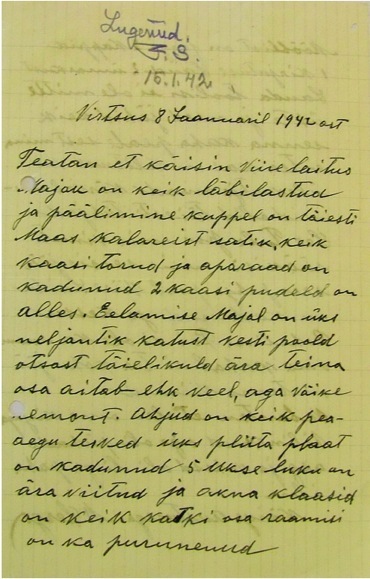 Lugenud.
15.1.42
Virtsus 8 Jaanuaril 1942 ast
Teatan et käisin Viirelaitus
Majak on keik läbilastud
ja päälimine kuppel on täiesti
Maas kalareist satik, keik
kaasi torud ja aparaad on
kadunud 2 kaasi pudeld on
alles. Eelamise Majal on üks
neljantik katust kesti poold
otsast täielikuld ära teina
osa aitab ehk veel, aga väike
remont. Ahjud on keik pea-
aegu terved üks pliita plaat
on kadunud 5 ukse luku on
ära viitud ja akna klaasid
on keik katki osa raamisi
on ka purunenud